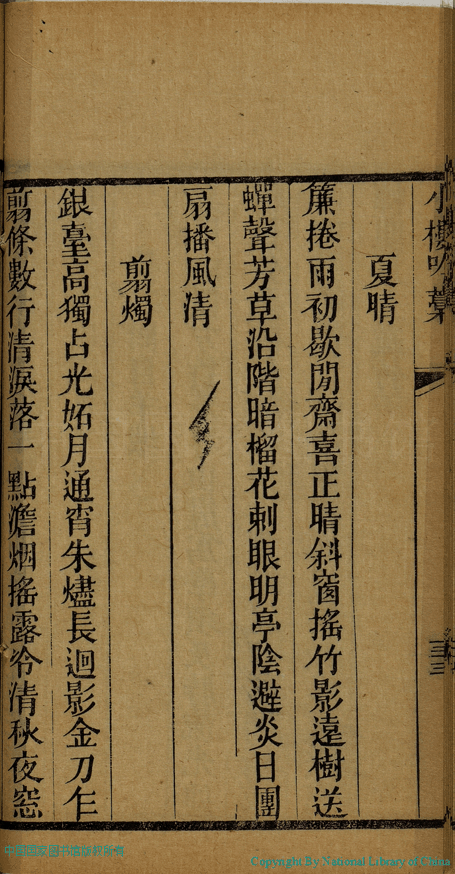 小樓吟葉
三三
夏晴
簾捲雨初歇閒齋喜正晴斜窗搖竹影遠樹送
蟬聲芳草沿階暗榴花刺眼明亭陰避炎日團
扇播風清
翦燭
銀臺高獨占光妬月通宵朱燼長迴影金刀乍
翦條數行清淚落一點澹烟搖露冷清秋夜窓
Copyright By National Library of China